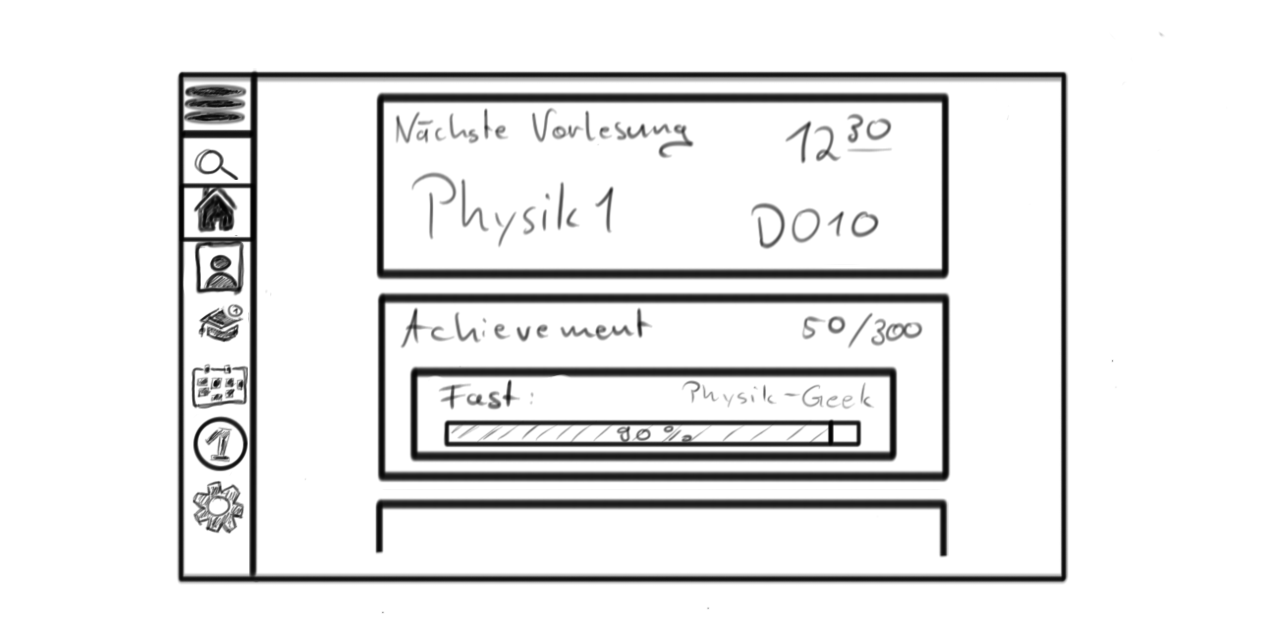 Nächste Vorlesung 12 30
Physik 1 D010
Achievement 50/300
Fast: Physik-Geek
90%
1